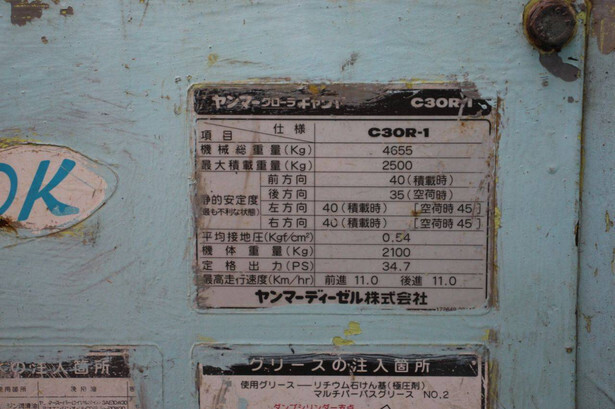 ヤンマークローラキャリヤ C30R-1
項目 仕様 C30R-1
機械総重量(Kg) 4655
最大積載重量(Kg) 2500
静的安定度(最も不利な状態) 前方向 40(積載時)
後方向 35(空荷時)
左方向 40(積載時) [空荷時45°]
右方向 40(積載時) [空荷時45°]
平均接地圧(Kgf/cm²) 0.54
機体重量(Kg) 2100
定格出力(PS) 34.7
最高走行速度(Km/hr) 前進 11.0 後進 11.0
ヤンマーディーゼル株式会社
OK
の注入箇所
グリースの注入箇所
使用グリース──リチウム石けん基(極圧剤)
マルチパーパスグリース NO.2
ダンプシリンダー支点